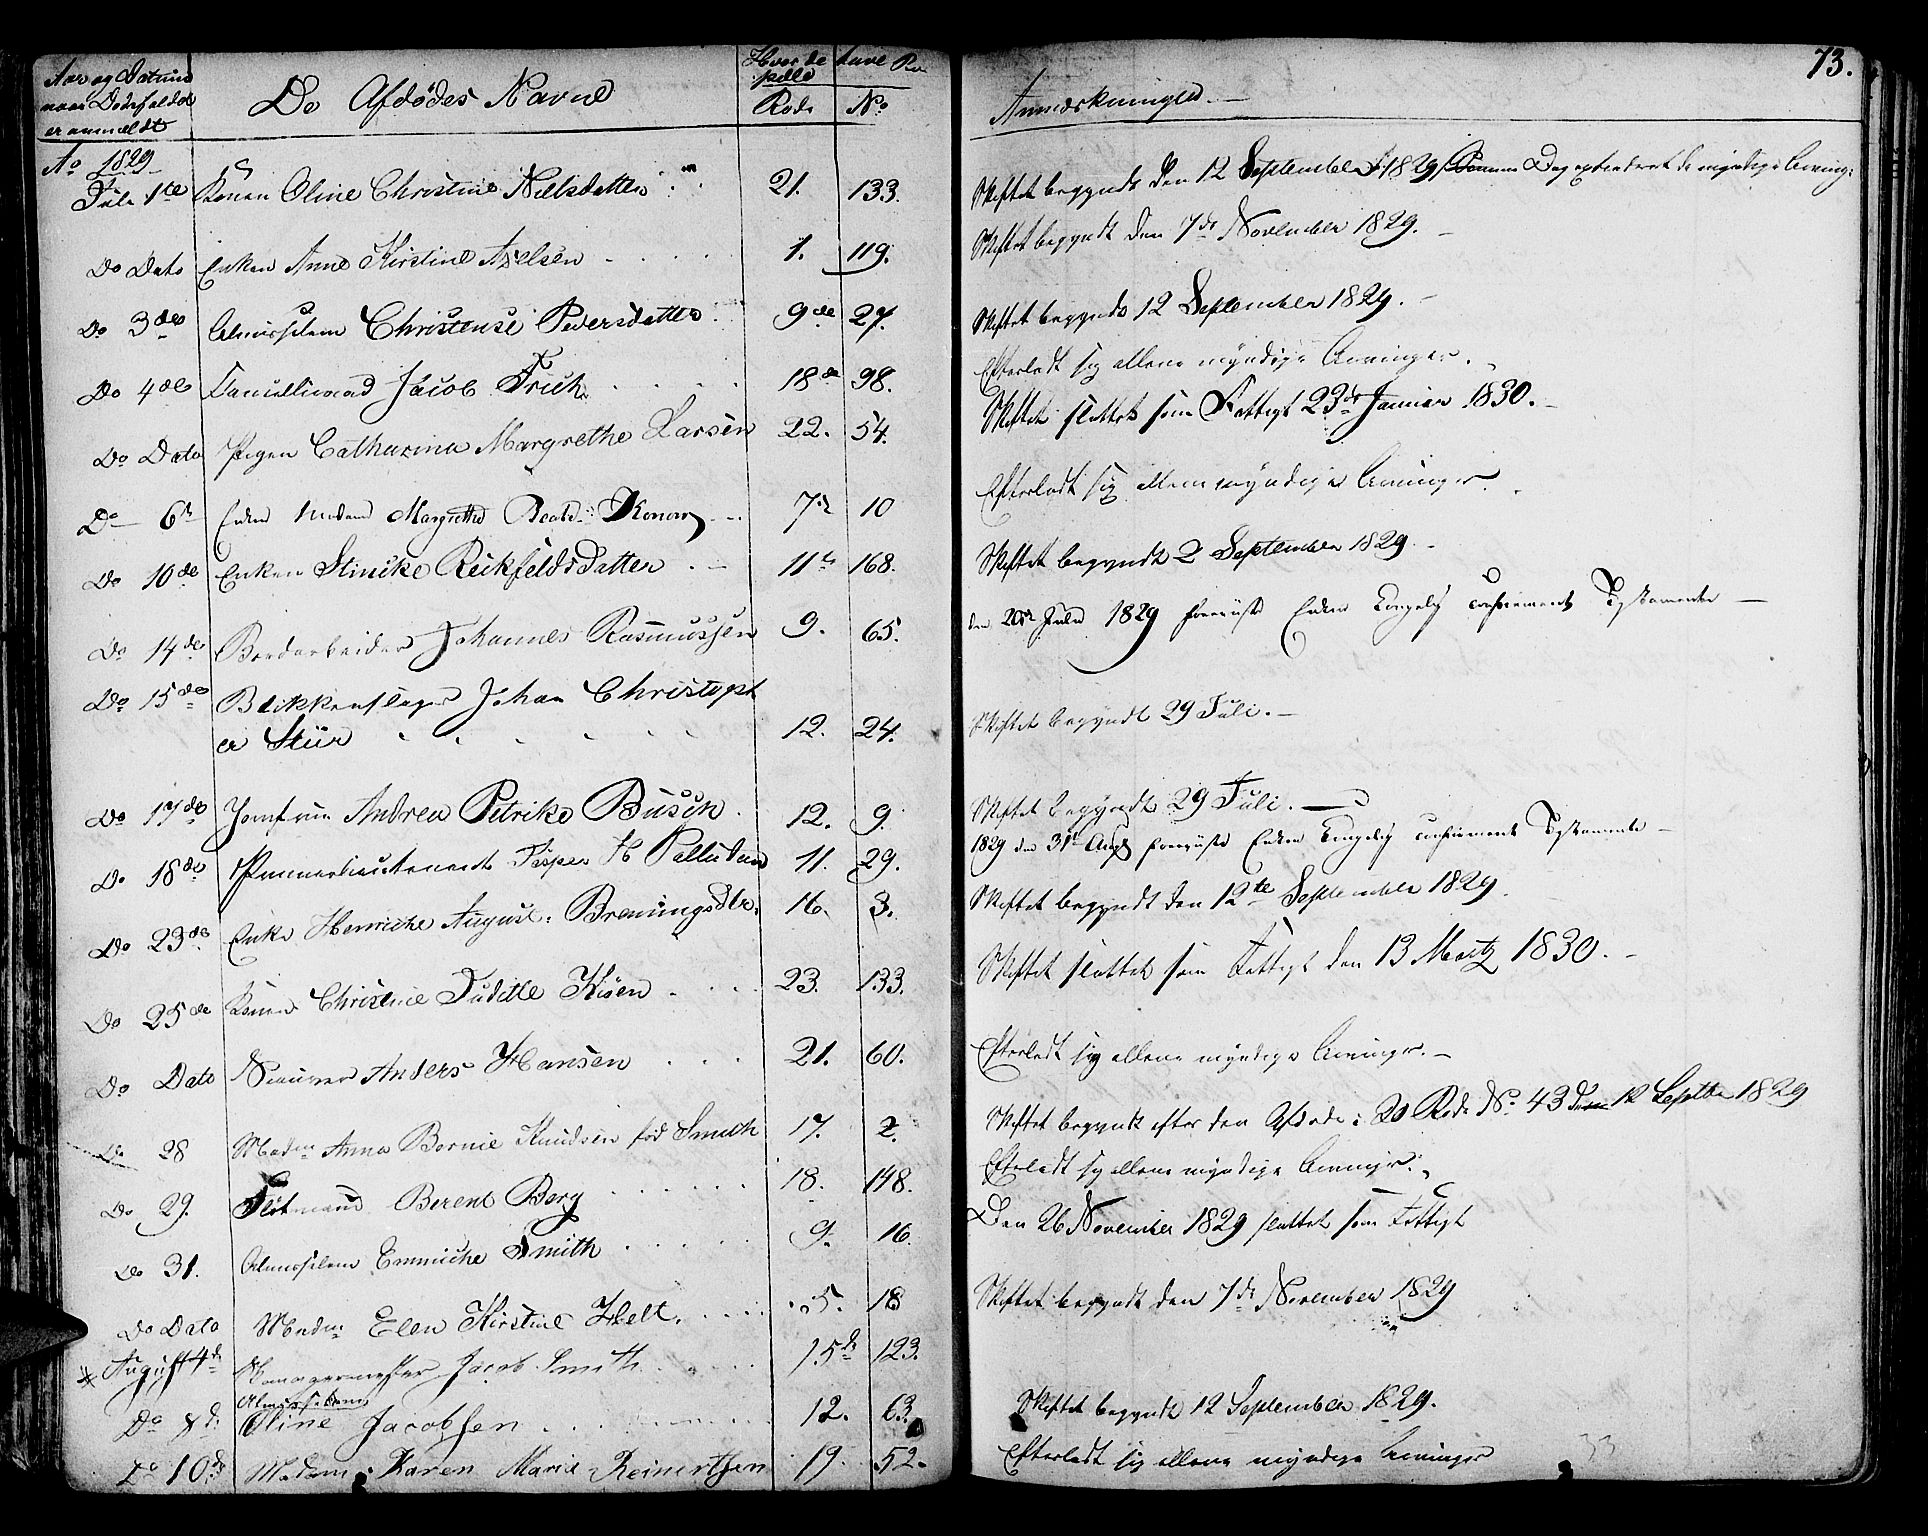 Aar og Datum
naar Dødsfaldet
er anmældt
De Afdødes Navne
Hvor de have
Rode No
Ao 1829
Juli 1te Konen Oline Christine Nielsdatter 21. 133.
Do Dato Enken Anne Kirstine Axelsen 1. 119.
Do 3de Christense Pedersdatter 9de 27.
Do 4de Jacob Frich 18de 98.
Do Dato Pigen Catharina Margrethe Larsen 22. 54.
Do 6te Enke Madam Margrethe Beate Konow 7de 10
Do 10de Enken Stincke Reckfeldsdatter 11te 168.
Do 14de Bordarbeider Johannes Rasmussen 9. 65.
Do 15de Blikkenslager Johan Christoph
er Stür 12. 24.
Do 17de Jomfrue Andrea Petrike Büsch 12. 9.
Do 18de Premierlieutenant Jesper H Palludan 11. 29.
Do 23de Enke Henricke August. Breningsdtr. 16. 3.
Do 25de Konen Christine Judithe Kisen 23. 133.
Do Dato Anders Hansen 21. 60.
Do 28 Madm Anna Bernie Knudsen fød Smith 17. 2.
Do 29. Flotmand Berent Berg 18. 148.
Do 31. Emmicke Smith 9. 16.
Do Dato Madm Elen Kirstine Helt. 5. 18
August 4de Jacob Smith 15de 123.
Do 8de Oline Jacobsen 12. 63.
Do 10de Madam Karen Marie Reinertsen 19. 52.
73.
Anmærkninger.
Skiftet begyndt den 12 September 1829 Dag extraderet de myndige Arvinger
Skiftet begyndt den 7de November 1829.
Skiftet begyndt 12 September 1829.
Efterladt sig allene myndige Arvinger.
Skiftet sluttet som Fattigt 23de Januar 1830.
Efterladt sig allene myndige Arvinger.
Skiftet begyndt 2 September 1829.
den 20de Julii 1829 foreviiste Enken Kongelig confirmeret Testamente
Skiftet begyndt 29 Juli.
Skiftet begyndt 29 Juli.
1829 den 31te Aug foreviiste Enken Kongelig confirmeret Testamente
Skiftet begyndt den 12te September 1829.
Skiftet sluttet som Fattigt den 13 Martz 1830.
Efterladt sig allene myndige Arvinger.
Skiftet begyndt efter den Afdøde i 20 Rode No 43 den 12 Septbr 1829
Efterladt sig allene myndige Arvinger.
Den 26 November 1829 sluttet som Fattigt
Skiftet begyndt den 7de November 1829
Skiftet begyndt 12 September 1829.
Efterladt sig allene myndige Arvinger